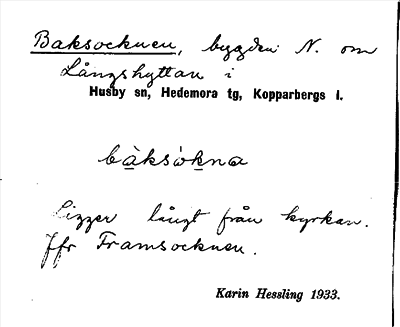 Baksocknen, bygden N. om
Långshyttan i
Husby sn, Hedemora tg, Kopparbergs l.
bàksòkna
Ligger långt från kyrkan.
Jfr Framsocknen.
Karin Hessling 1933.